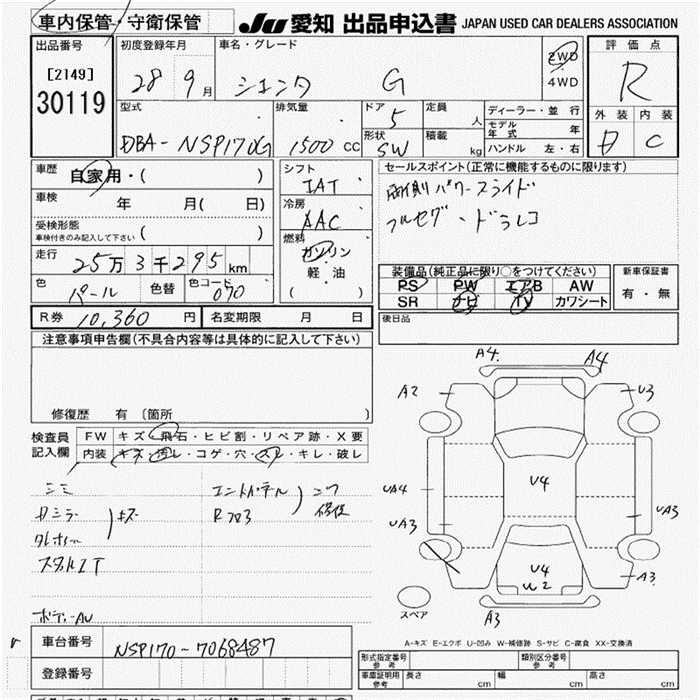 車内保管・守衛保管
JU 愛知 出品申込書 JAPAN USED CAR DEALERS ASSOCIATION
出品番号
[2149]
30119
初度登録年月
28 9月
車名・グレード
シエンタ G
2WD
・
4WD
評価点
R
外装 内装
D C
型式
DBA-NSP170G
排気量
1500 cc
ドア
5
定員
人
形状
SW
積載
kg
ディーラー・並行
モデル年式 年
ハンドル 左・右
車歴
自家用・( )
車検
年 月( 日)
受検形態
車検付きのみ記入して下さい ( )
走行
25万3千295km
色
パール
色替
色コード
070
シフト
IAT
冷房
AAC
燃料
ガソリン
軽・油
( )
セールスポイント(正常に機能するものに限ります)
両側パワースライド
フルセグ・ドラレコ
装備品(純正品に限り○をつけてください)
PS PW エアB AW
SR ナビ TV カワシート
新車保証書
有・無
R券 10,360円
名変期限 月 日
後日品
注意事項申告欄(不具合内容等は具体的に記入して下さい)
修復歴 有 〔箇所 〕
検査員記入欄
FW キズ・飛石・ヒビ割・リペア跡・X要
内装 キズ・汚レ・コゲ・穴・スレ・キレ・破レ
シミ
Dミラー
タレホイール
キズ
スタットレスIT
ボディーAU
エンドパネル
Rフロア
コワ
修復
A4 A4
A2 U3
U4
UA4
UA3 UA3
U4
W2
A3
A3
スペア
A-キズ E-エクボ U-凹み W-補修跡 S-サビ C-腐食 XX-交換済
車台番号 NSP170-7068487
登録番号
形式指定番号 参考
類別区分番号 参考
車庫証明用 参考 長さ cm 幅 cm 高さ cm